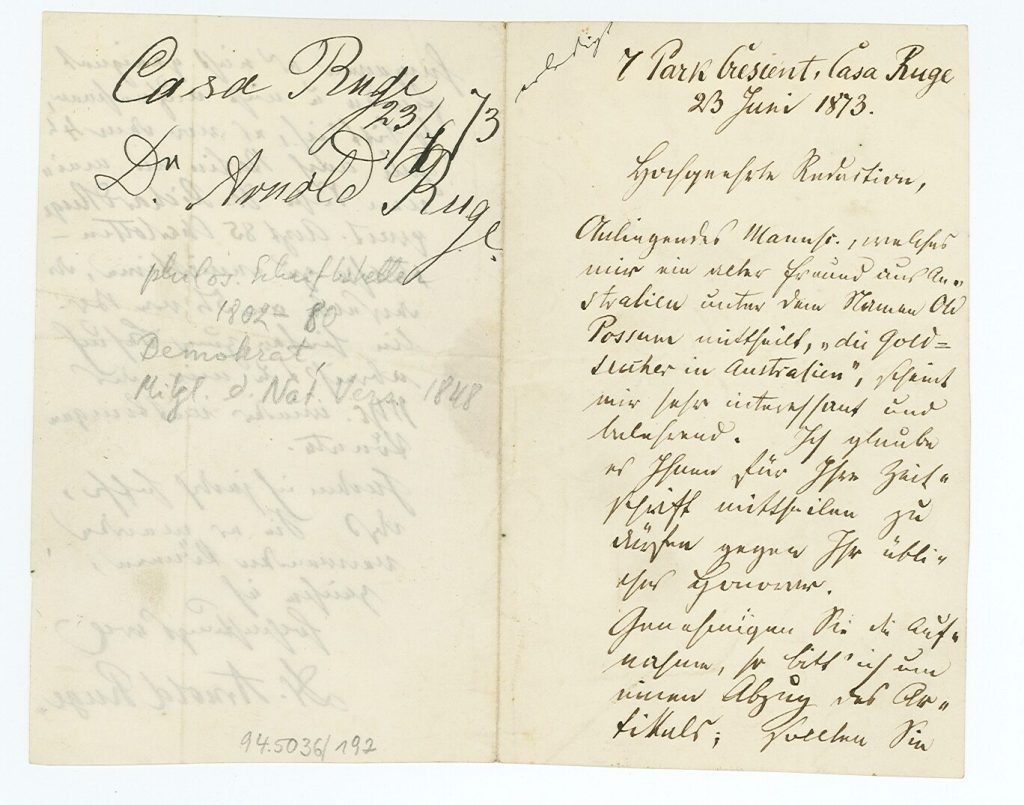 Casa Ruge
23/7/73
Dr Arnold Ruge.
philos. Schriftsteller
1802 - 80
Demokrat,
Mitgl. d. Nat. Vers. 1848
94.5036/192
erledigt
7 Park Cresient, Casa Ruge
23 Juni 1873.
Hochgeehrte Redaction,
Anliegendes Manusc., welches
mir ein alter Freund aus Au-
stralien unter dem Namen Old
Possum mittheilt, „die Gold=
sucher in Australien", scheint
mir sehr interessant und
belehrend. Ich glaube
es Ihnen für Ihre Zeit-
schrift mittheilen zu
dürfen gegen Ihr übli-
ches Honorar.
Genehmigen Sie die Auf-
nahme, so bitt' ich um
einen Abzug des Ar-
tikels; sollten Sie